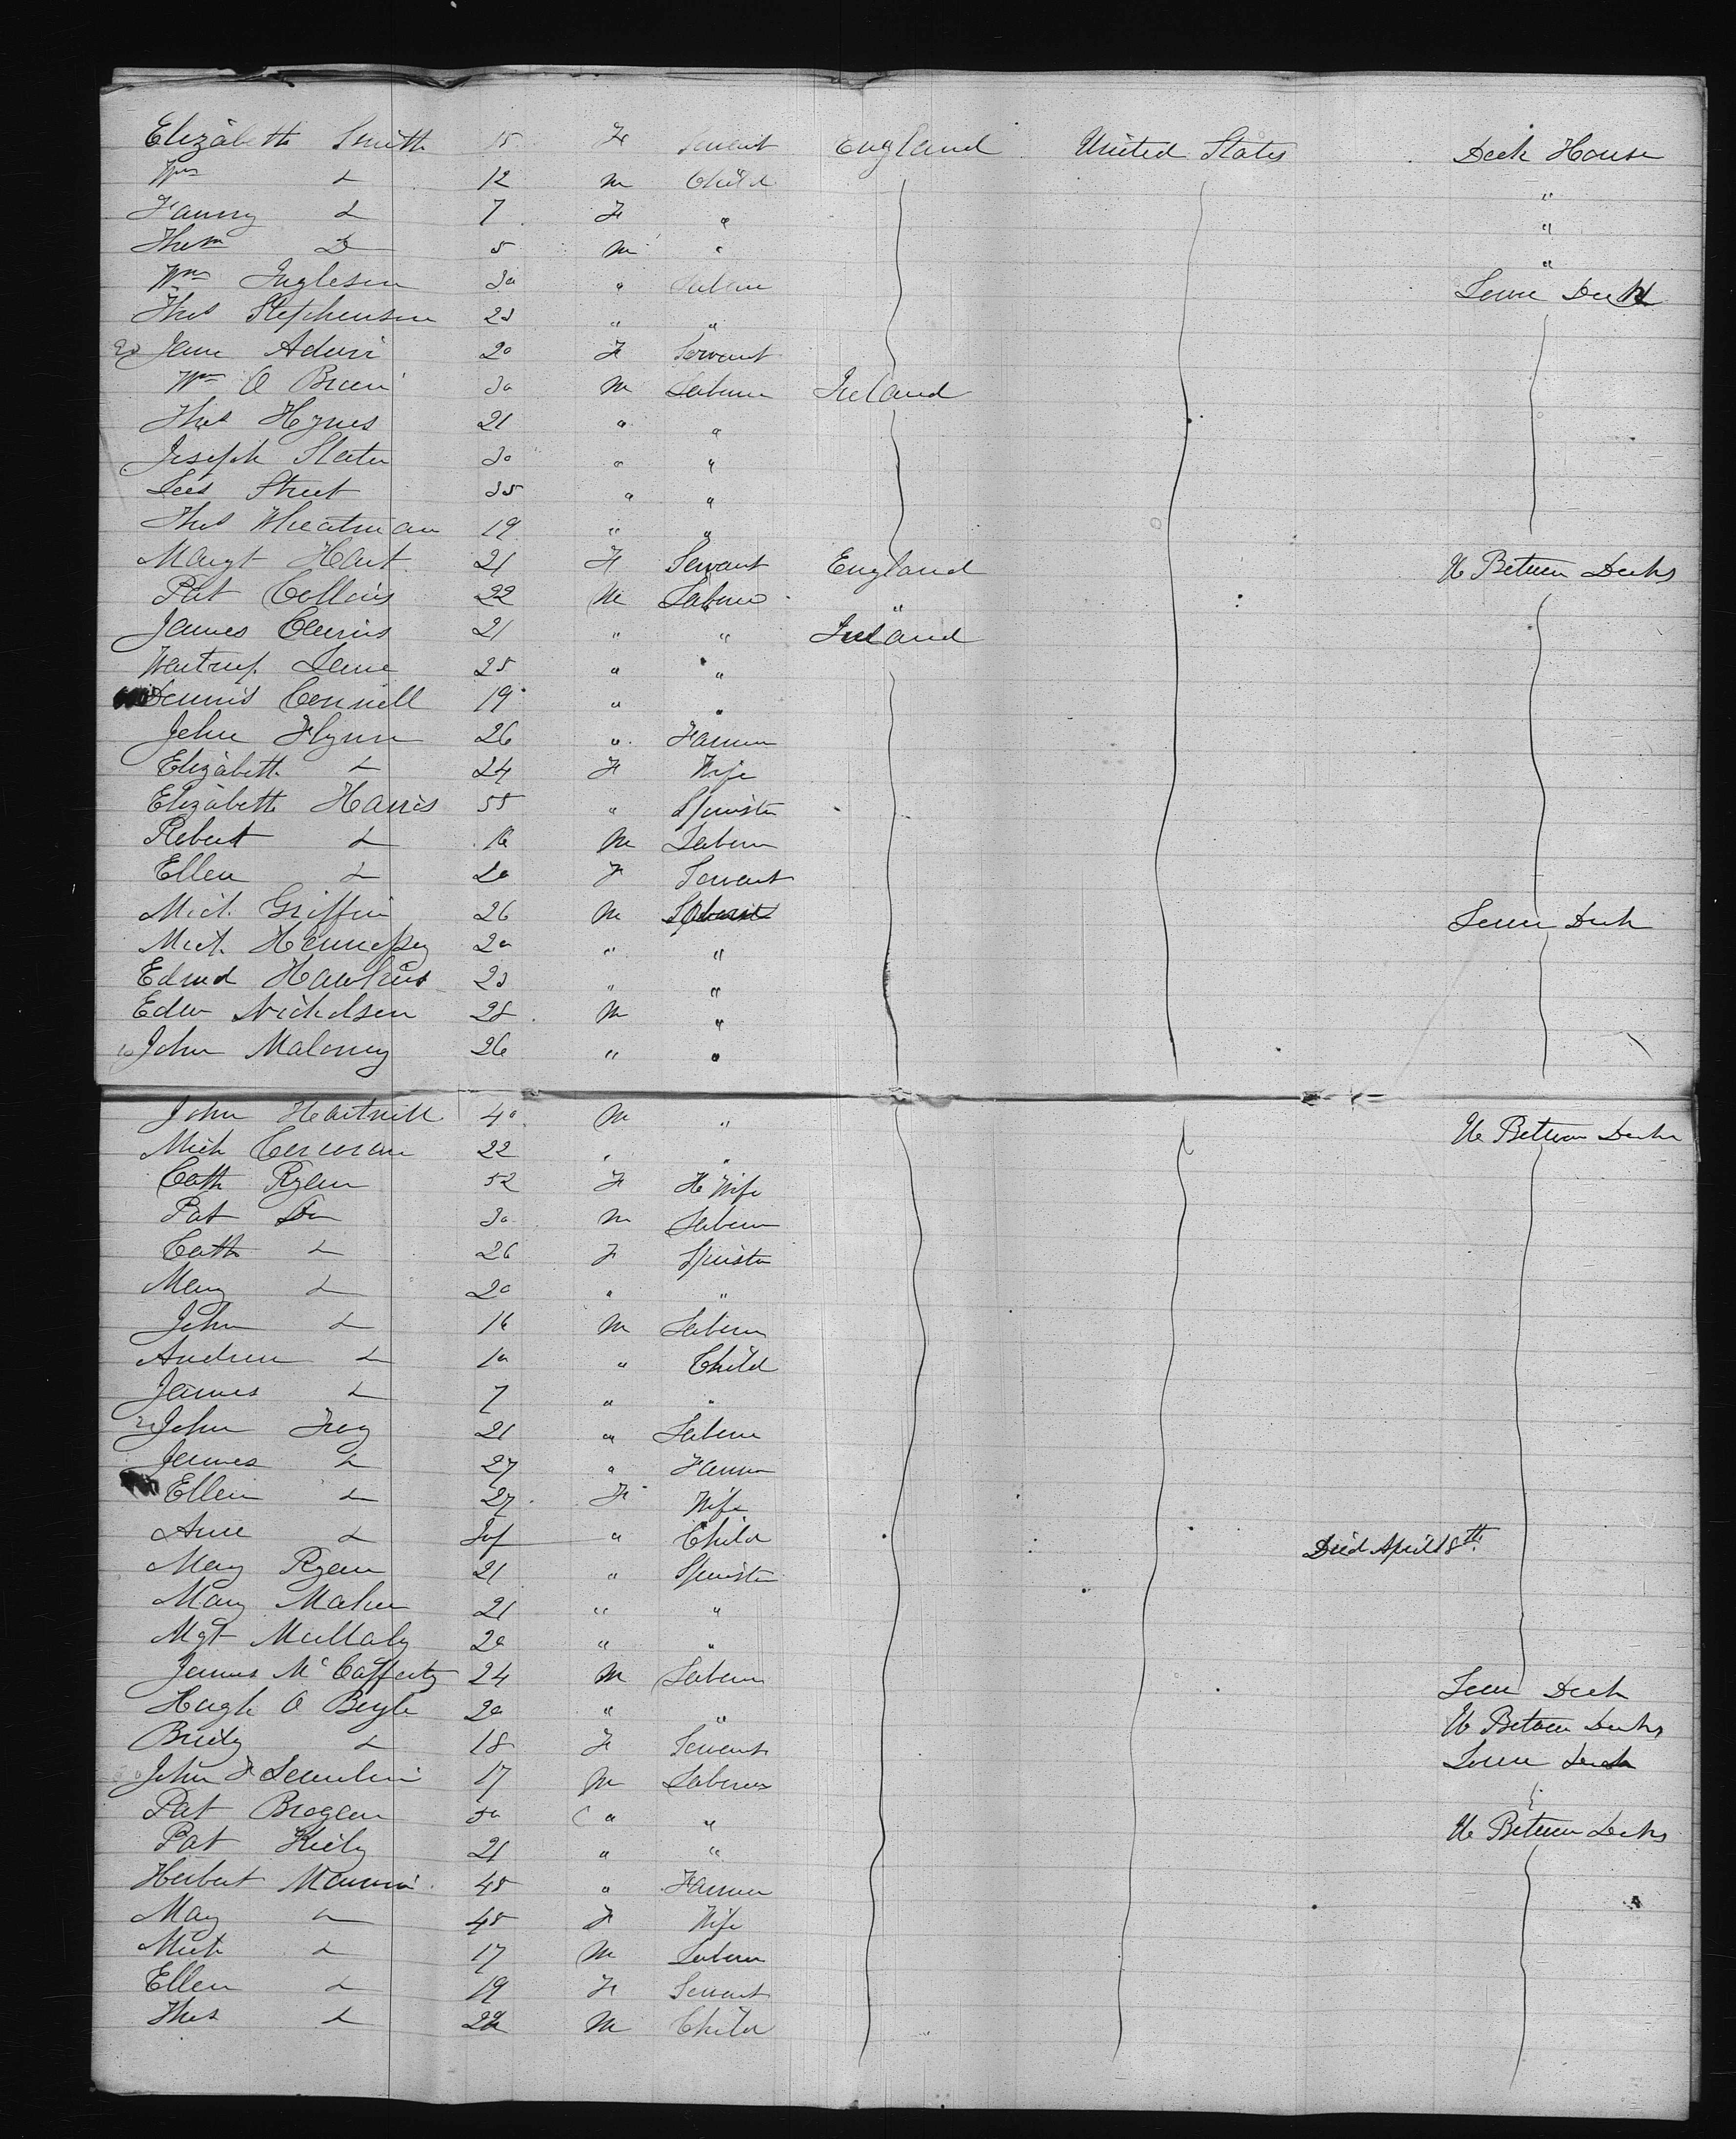 Elizabeth Smith 15 F Servant England United States Deck House
Wm Do 12 M Child "
Fanny Do 7 F " "
Thom Do 5 M " "
Wm Ingleson 30 " Laborer Lower Deck
Thos Stephenson 23 " "
Jane 20 F Servant
Wm O Brien 30 M Laborer Ireland
Thos Hynes 21 " "
Joseph Slater 30 " "
Lees Street 35 " "
Thos Wheatman 19 " "
Margt Hart 21 F Servant England U Between Decks
Pat Collins 22 M Laborer "
James 21 " " Ireland
25 " "
Dennis Connell 19 " "
John Flynn 26 " Farmer
Elizabeth Do 24 F Wife
Elizabeth Harris 55 " Spinster
Robert Do 16 M Laborer
Ellen Do 20 F Servant
Mich Griffin 26 M Laborer Lower Deck
Mich Hennessy 20 " "
Edmd Hawkins 23 " "
Edw Nicholson 28 M "
John Maloney 26 " "
John Hartnett 40 M " U Between Decks
Mich Corcoran 22 " "
Cath Ryan 52 F H Wife
Pat Do 30 M Laborer
Cath Do 26 F Spinster
Mary Do 20 " "
John Do 16 M Laborer
Andrew Do 10 " Child
James Do 7 " "
John Troy 21 " Laborer
James Do 27 " Farmer
Ellen Do 27 F Wife
Anne Do Inf " Child Died April 18th
Mary Ryan 21 " Spinster
Mary Maher 21 " "
Mgt Mullaly 20 " "
James McCafferty 24 M Laborer Lower Deck
Hugh O Boyle 20 " " U Between Decks
Bridy Do 18 F Servant Lower Deck
John 17 M Laborer
Pat Brogan 50 " " U Between Decks
Pat Kiely 21 " "
Herbert 45 " Farmer
Mary Do 45 F Wife
Mich Do 17 M Laborer
Ellen Do 19 F Servant
Thos Do M Child